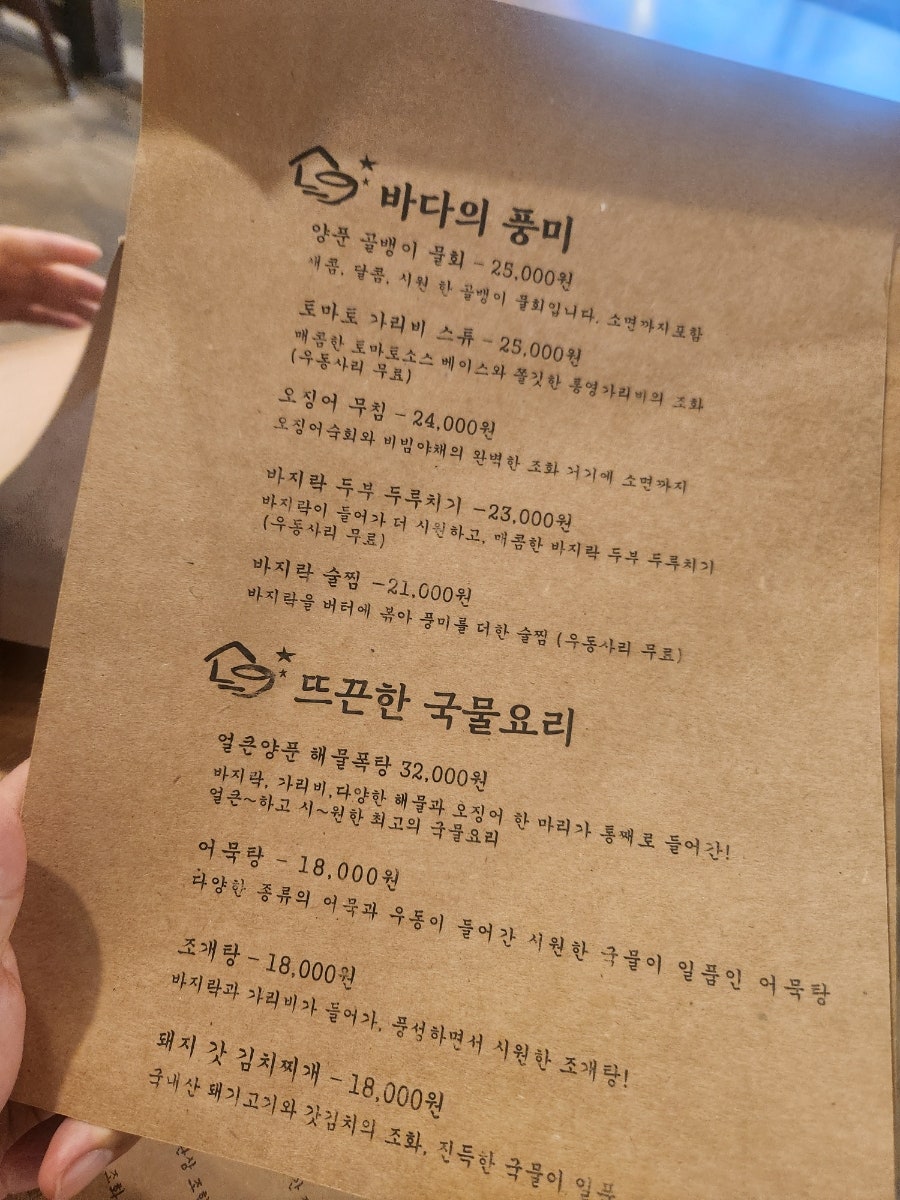 바다의 풍미
양푼 골뱅이 물회 - 25,000원
새콤, 달콤, 시원 한 골뱅이 물회입니다. 소면까지포함
토마토 가리비 스튜 - 25,000원
매콤한 토마토소스 베이스와 쫄깃한 통영가리비의 조화
(우동사리 무료)
오징어 무침 - 24,000원
오징어숙회와 비빔야채의 완벽한 조화 거기에 소면까지
바지락 두부 두루치기 -23,000원
바지락이 들어가 더 시원하고, 매콤한 바지락 두부 두루치기
(우동사리 무료)
바지락 술찜 -21,000원
바지락을 버터에 볶아 풍미를 더한 술찜 (우동사리 무료)
뜨끈한 국물요리
얼큰양푼 해물폭탕 32,000원
바지락, 가리비,다양한 해물과 오징어 한 마리가 통째로 들어간!
얼큰~하고 시~원한 최고의 국물요리
어묵탕 - 18,000원
다양한 종류의 어묵과 우동이 들어간 시원한 국물이 일품인 어묵탕
조개탕 - 18,000원
바지락과 가리비가 들어가, 풍성하면서 시원한 조개탕!
돼지 갓 김치찌개 - 18,000원
국내산 돼기고기와 갓김치의 조화, 진득한 국물이 일품